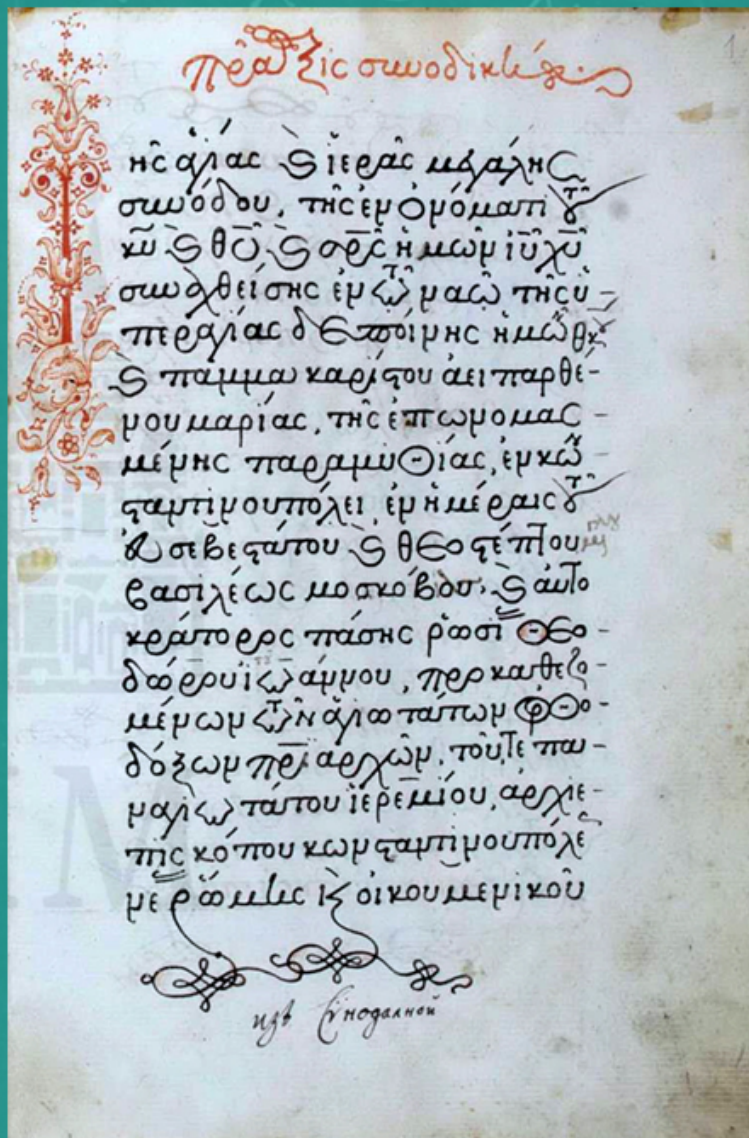 πρᾶξις συνοδική
1
ῆς ἁγίας καὶ ἱερᾶς μεγάλης
συνόδου, τῆς ἐν ὀνόματι τοῦ
κυ καὶ θυ καὶ σρς ἡμῶν ιυ χυ
συναχθείσης ἐν τῷ ναῷ τῆς ὑ-
περαγίας δεσποίνης ἡμῶν θκου
καὶ παμμακαρίστου ἀειπαρθέ-
νου μαρίας, τῆς ἐπωνομας-
μένης παραμυθίας, ἐν κων
σταντινουπόλει, ἐν ἡμέραις τοῦ
εὐσεβεστάτου καὶ θεοστέπτου
βασιλέως μοσκόβου, καὶ αὐτο
κράτορος πάσης ῥωσί θεο-
δώρου ἰωάννου, προκαθεζο
μένων τῶν ἁγιωτάτων ὀρθο-
δόξων πριαρχῶν, τοῦ τε πα-
ναγιωτάτου ἱερεμίου, ἀρχιε-
πισκόπου κωνσταντινουπόλε
νέ ῥώμης καὶ οἰκουμενικοῦ
изъ Сѵнодалной